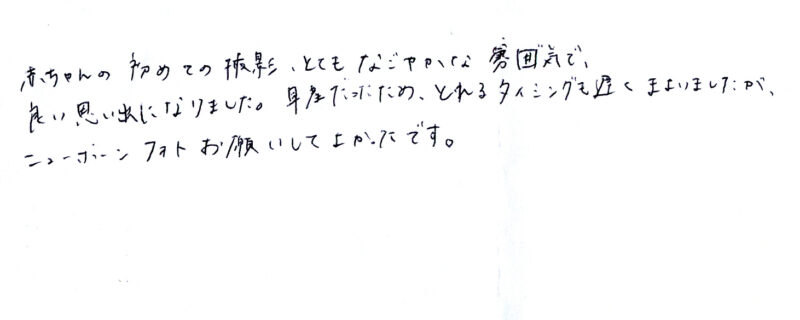 赤ちゃんの初めての撮影、とてもなごやかな雰囲気で、
良い思い出になりました。早産だったため、とれるタイミングも遅くまよいましたが、
ニューボーンフォトお願いしてよかったです。